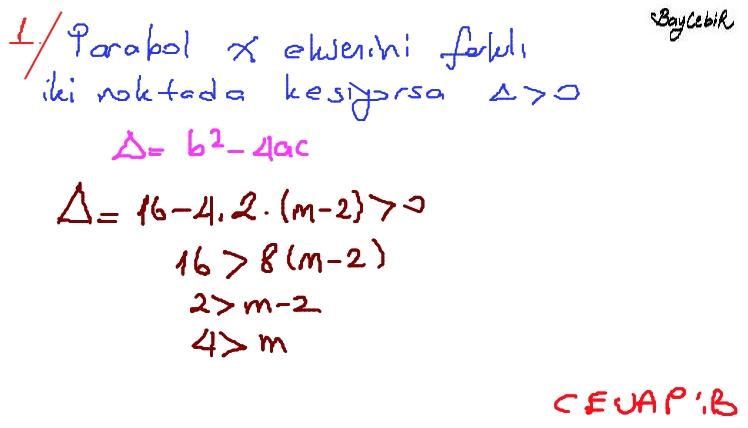 BayCebiR
1/ Parabol x eksenini farklı
iki noktada kesiyorsa Δ>0
Δ= b²-4ac
Δ= 16-4.2.(m-2)>0
16>8(m-2)
2>m-2
4>m
CEVAP:B